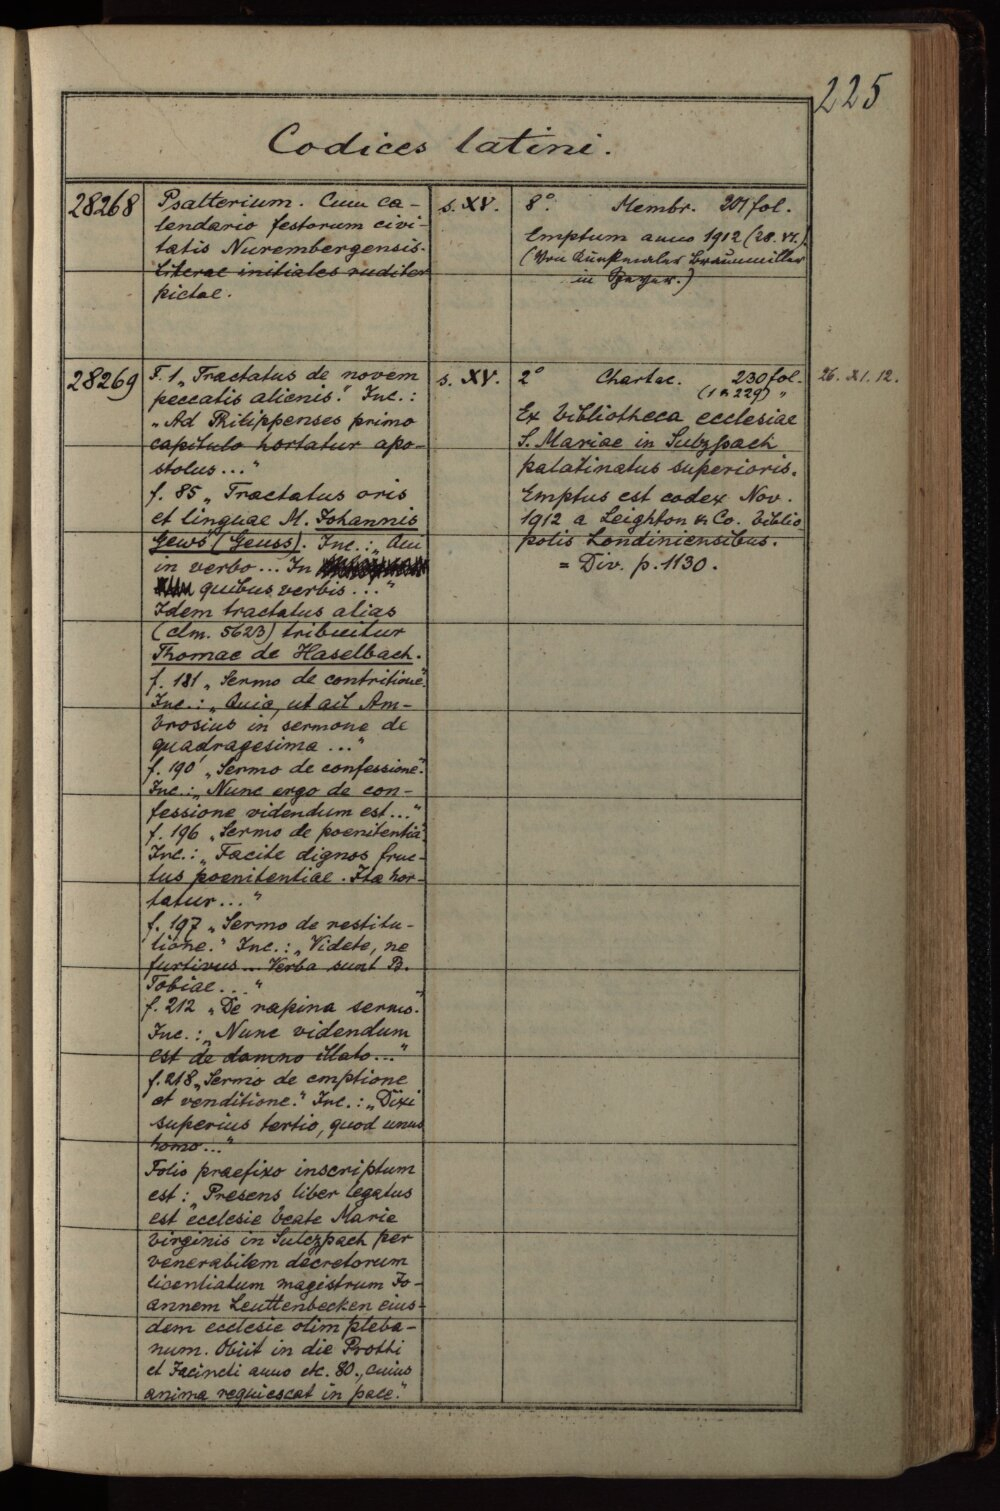 225
Codices latini.
28268
Psalterium. Cum ca-
lendario festorum civi-
tatis Nurembergensis.
Literae initiales ruditer
pictae.
s. XV.
8°. Membr. 201 fol.
Emptum anno 1912 (28. VI.)
(Von Braunmiller
in Speyer.)
28269
F. 1 „Tractatus de novem
peccatis alienis." Inc.:
„Ad Philippenses primo
capitulo hortatur apo-
stolus..."
f. 85 „Tractatus oris
et linguae M. Johannis
Gews (Geuss). Inc.: „Qui
in verbo... In
quibus verbis..."
Idem tractatus alias
(clm. 5623) tribuitur
Thomae de Haselbach.
f. 181 „Sermo de contritione".
Inc.: „Quia, ut ait Am-
brosius in sermone de
quadragesima ..."
f. 190 „Sermo de confessione".
Inc.: „Nunc ergo de con-
fessione videndum est..."
f. 196 „Sermo de poenitentia".
Inc.: „Facite dignos fruc-
tus poenitentiae. Ita hor-
tatur..."
f. 197 „Sermo de restitu-
tione." Inc.: „Videte, ne
furtivus... Verba sunt B.
Tobiae..."
f. 212 „De rapina sermo."
Inc.: „Nunc videndum
est de damno illato..."
f. 218 „Sermo de emptione
et venditione." Inc.: „Dixi
superius tertio, quod unus
homo..."
Folio praefixo inscriptum
est: „Presens liber legatus
est ecclesie beate Marie
virginis in Sulczpach per
venerabilem decretorum
licentiatum magistrum Jo-
annem Leuttenbecken eius-
dem ecclesie olim pleba-
num. Obiit in die Prothi
et Jacincti anno etc. 80., cuius
anima requiescat in pace."
s. XV.
2° Chartac. 230 fol.
(1 & 229) "
Ex bibliotheca ecclesiae
S. Mariae in Sulzpach
palatinatus superioris.
Emptus est codex Nov.
1912 a Leighton & Co. biblio-
polis Londiniensibus.
= Div. p. 1130.
26. XI. 12.